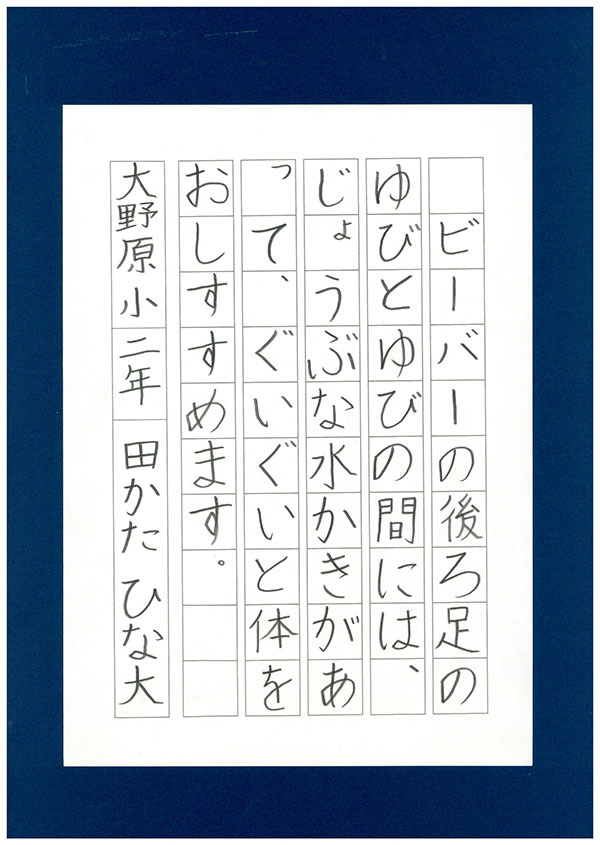 ビーバーの後ろ足の
ゆびとゆびの間には、
じょうぶな水かきがあ
って、ぐいぐいと体を
おしすすめます。
大野原小 二年 田かた ひな大